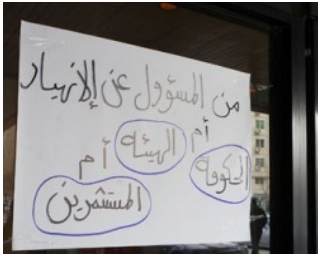 من المسؤول عن الإنهيار
الحكومة أم الهيئه أم
المستثمرين